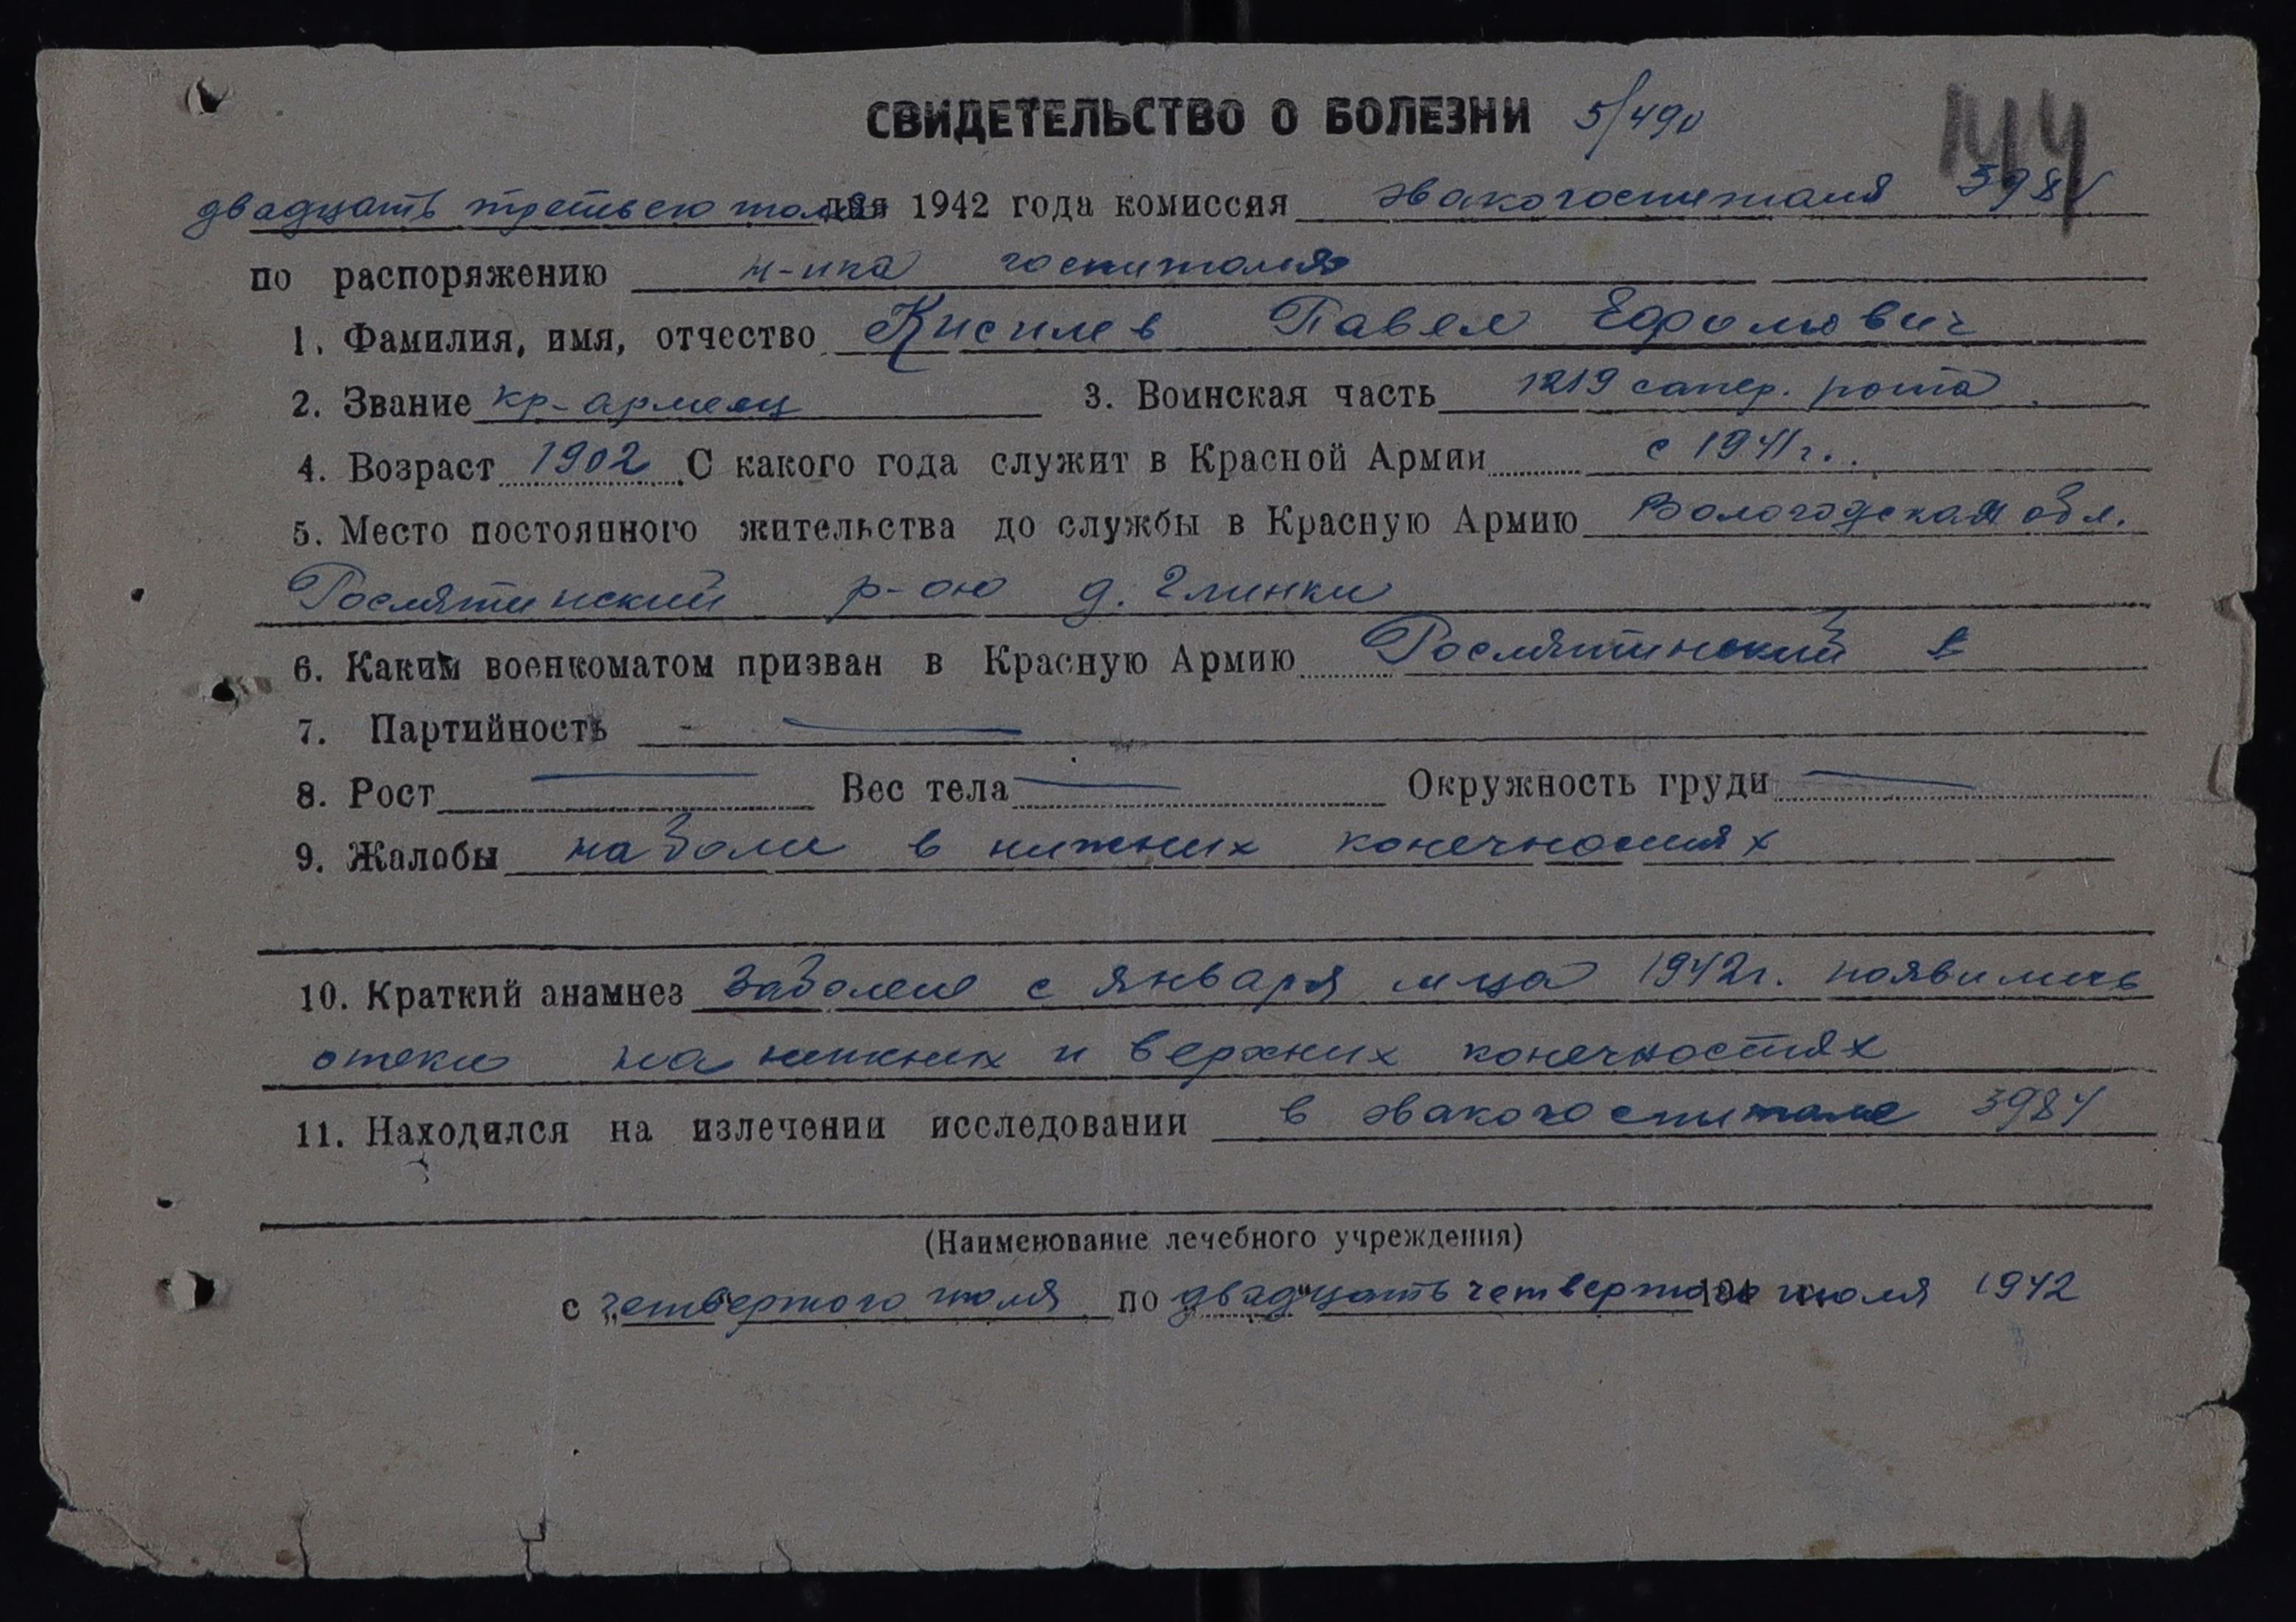 СВИДЕТЕЛЬСТВО О БОЛЕЗНИ 5/490
144
двадцать третьего июля дня 1942 года комиссия эвакогоспиталя 3984
по распоряжению н-ика госпиталя
1. Фамилия, имя, отчество Кисилев Павел Ефомович
2. Звание кр-армеец 3. Воинская часть 1219 сапер. рота.
4. Возраст 1902 С какого года служит в Красной Армии с 1941 г.
5. Место постоянного жительства до службы в Красную Армию Вологодская обл.
Рослятинский р-он д. Глинки
6. Каким военкоматом призван в Красную Армию Рослятинский
7. Партийность - —
8. Рост — Вес тела — Окружность груди —
9. Жалобы на боли в нижних конечностях
10. Краткий анамнез Заболел с января м-ца 1942 г. появились
отеки на нижних и верхних конечностях
11. Находился на излечении исследовании в эвакогоспитале 3984
(Наименование лечебного учреждения)
с четвертого июля по двадцать четвертое июля 1942